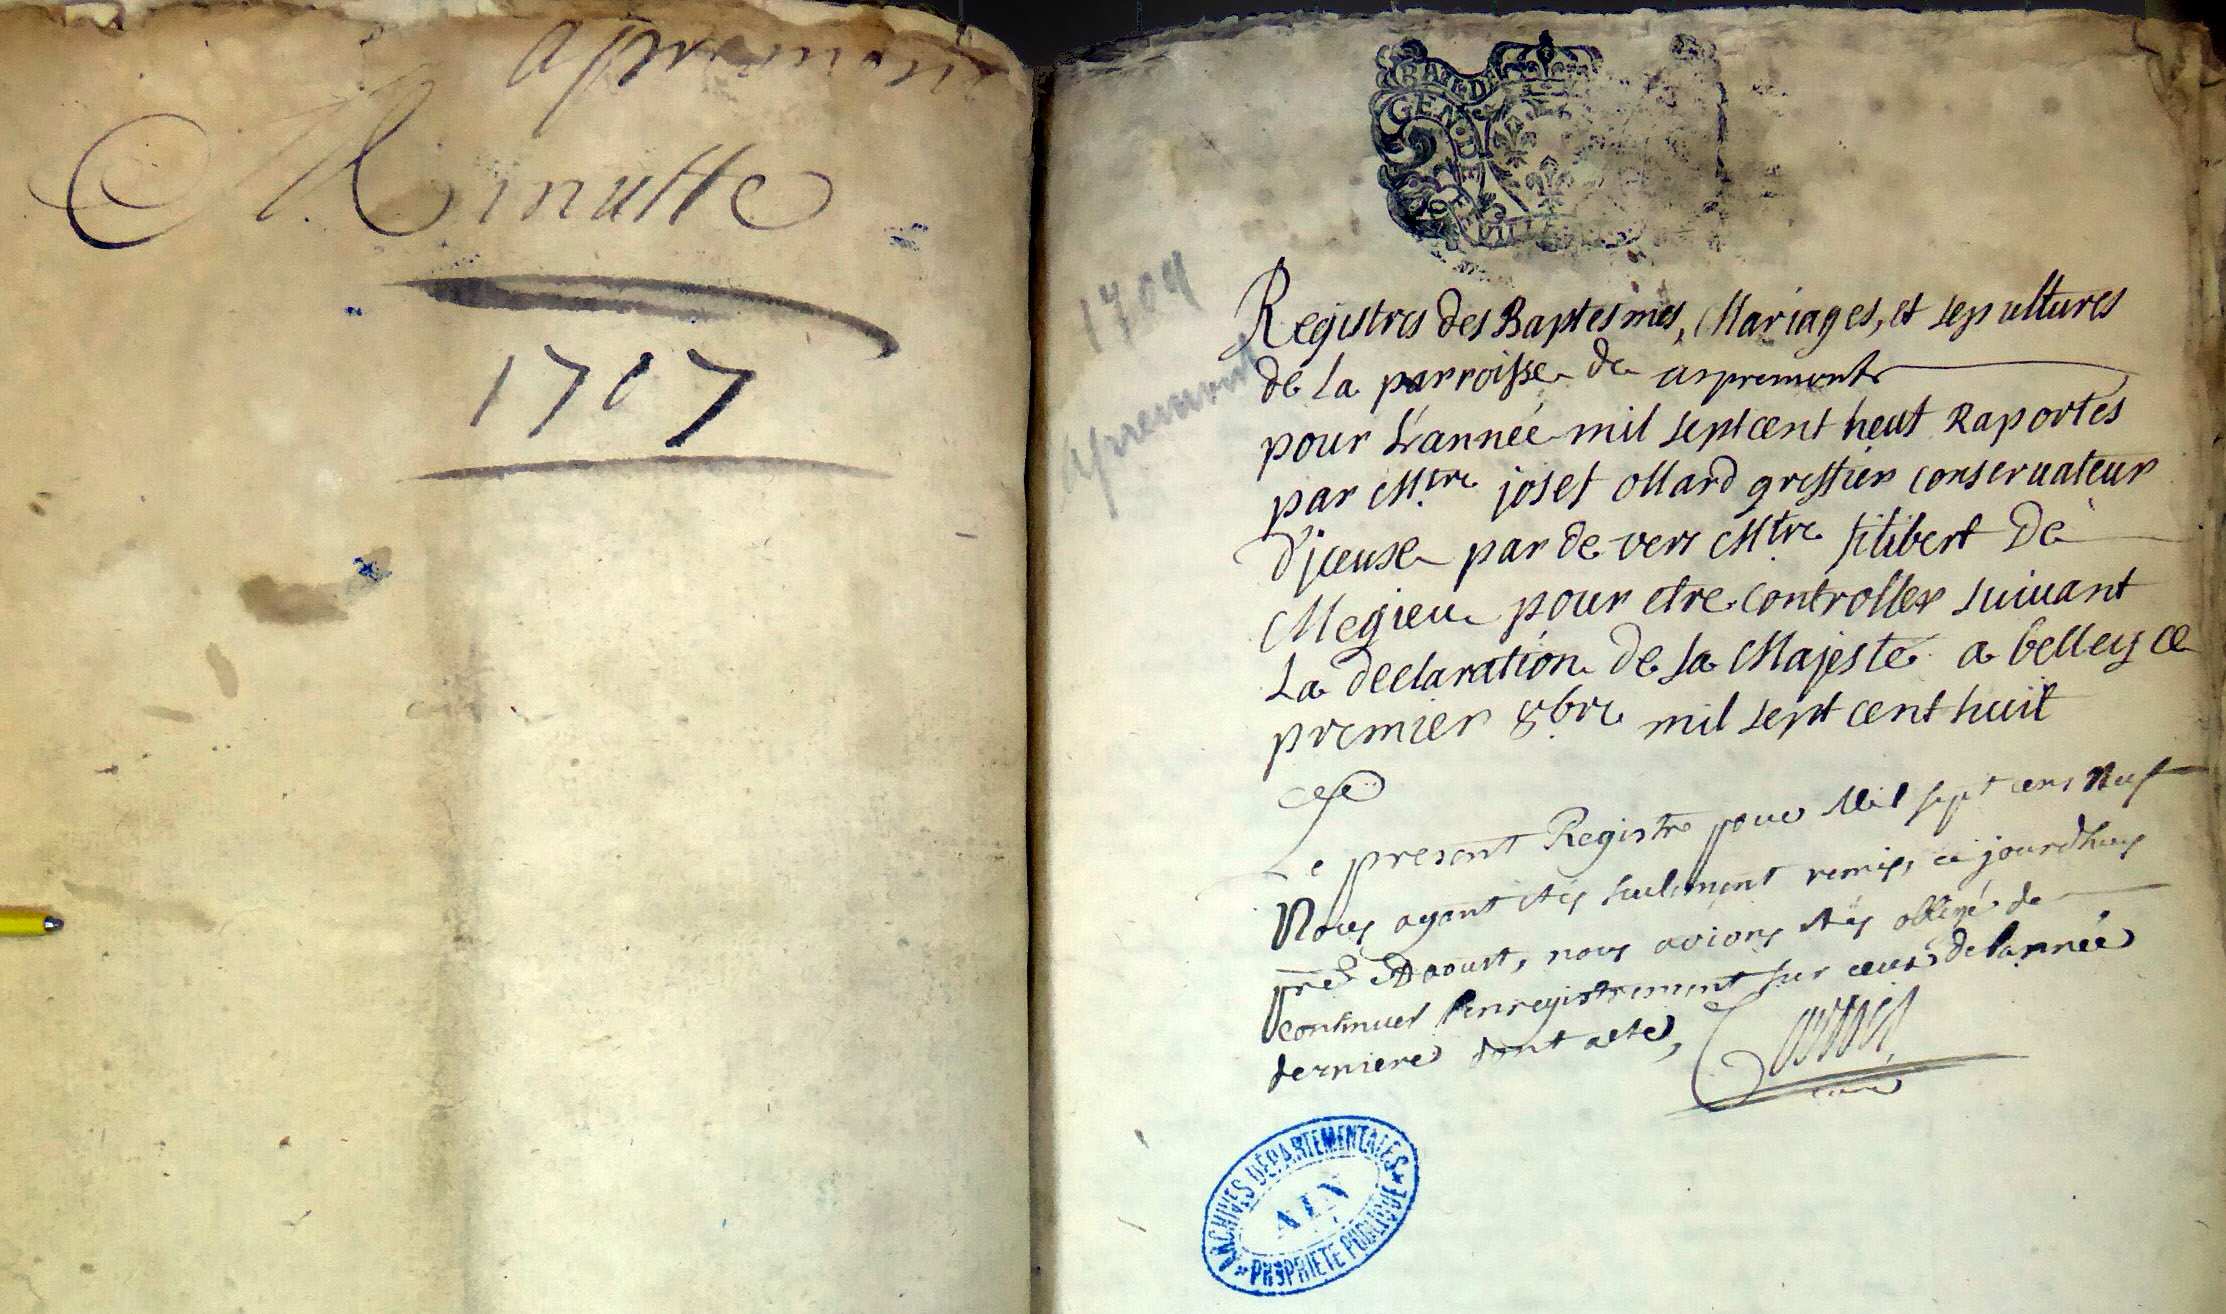 apremont
Minutte
1707
GEN DE
1709
apremont
Registres des Baptesmes, Mariages, et sepultures
de la parroisse de aspremont
pour L'année mil sept cent heut Raportés
par Mtre josef ollard greffier conseruateur
d'jceuse par de vers Mtre filibert De
Megieu pour etre controller suiuant
La declaration de sa Majesté a belley ce
premier 8bre mil sept cent huit
Le present Registre pour Mil sept cens Neuf
Nous ayant etés seulement remis, ce jourdhuy
pre Aoust, nous avions etés obligé de
continuer l'enregistrement sur ceux de l'année
derniere dont acte,
curé
ARCHIVES DÉPARTEMENTALES
AIN
PROPRIÉTÉ PUBLIQUE